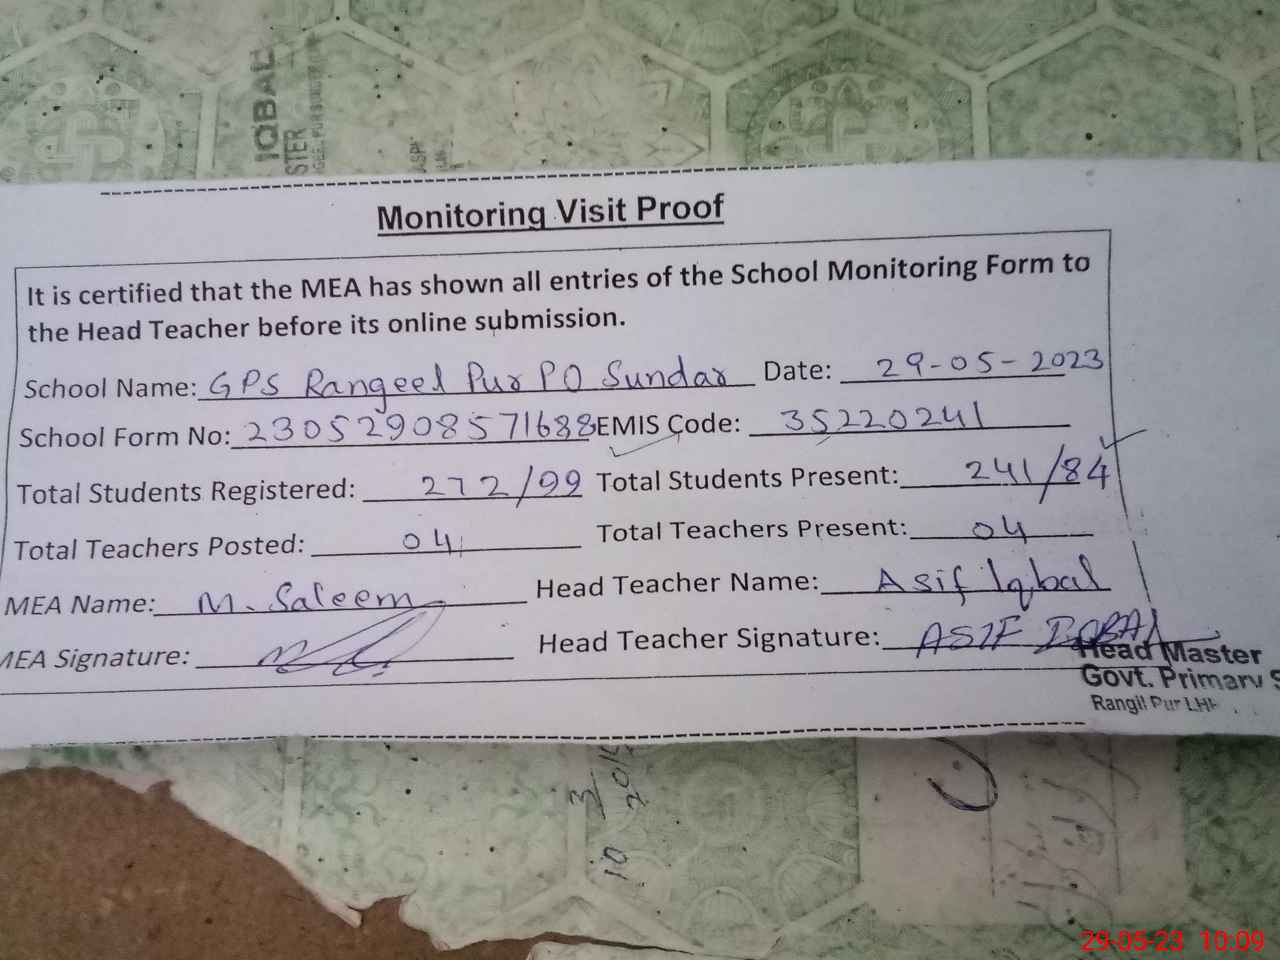 IQBAL
STER
Monitoring Visit Proof
It is certified that the MEA has shown all entries of the School Monitoring Form to
the Head Teacher before its online submission.
School Name: GPS Rangeel Pur PO Sundar Date: 29-05-2023
School Form No: 23052908571688 EMIS Code: 35220241
Total Students Registered: 272/99 Total Students Present: 241/84
Total Teachers Posted: 04 Total Teachers Present: 04
MEA Name: M. Saleem Head Teacher Name: Asif Iqbal
MEA Signature: Head Teacher Signature: ASIF IQBAL
Head Master
Govt. Primary S
Rangil Pur LHR
10 3 2015
29-05-23 10:09